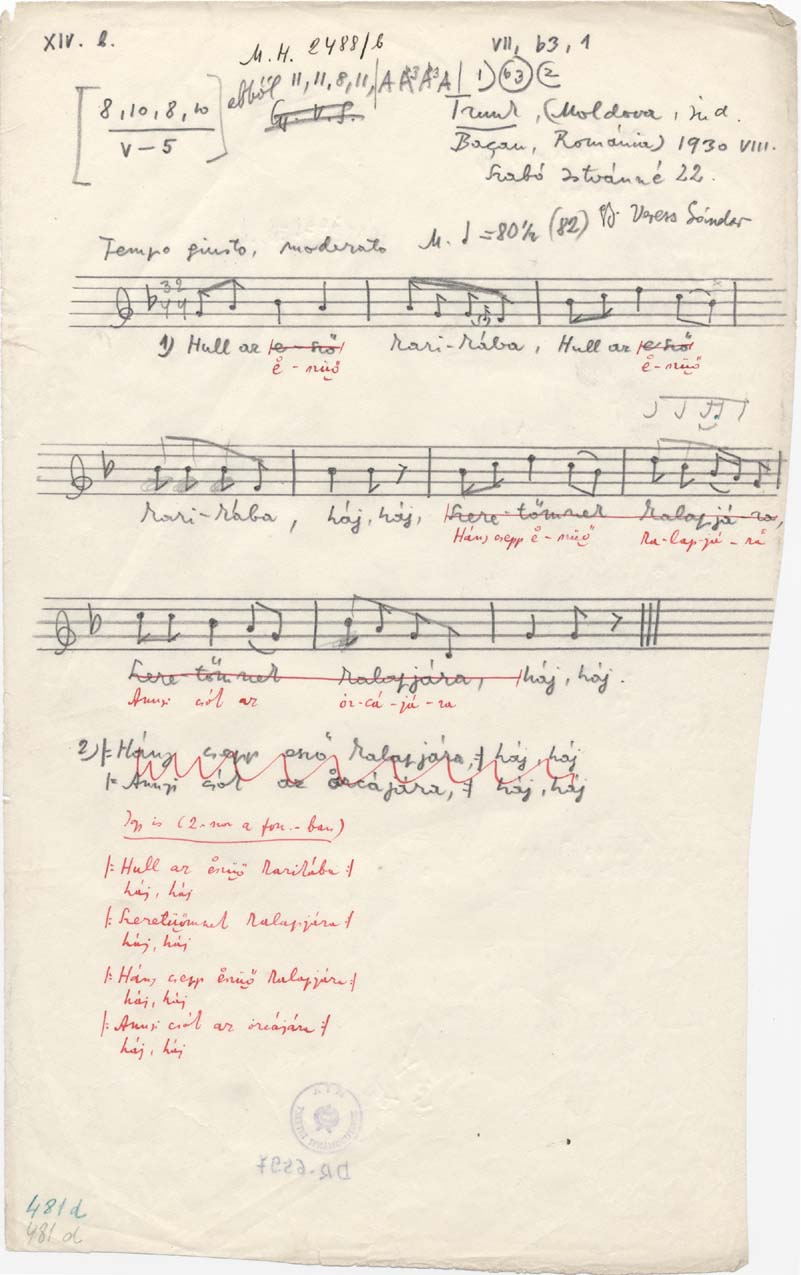 XIV. 2.
M.H. 2488/b
VII, b3, 1
[8,10,8,10
V – 5]
ebből 11, 11, 8, 11, | A A³ A³ A | 1) (b3) (2
Gy. V. S.
Trunk, (Moldova, jud.
Bacau, Románia) 1930 VIII.
Szabó Istvánné 22.
Tempo giusto, moderato M. ♩ = 80 (82) Veress Sándor
3 2
4 4
1) Hull az e-ső karikába, Hull az e-ső
e̊ - süő e̊ - süő
kari-kába, háj, háj, Szere-tőmnek kalapjá-ra,
Háns csepp e̊ - süő ka-lap-já-rå
Szere-tőmnek kalapjára, háj, háj.
Annyi csók az or-cá-já-ra
2) |: Háns csepp eső kalapjára, :| háj, háj
|: Annyi csók az orcájára, :| háj, háj
Így is (2-szer a fon.-ban)
|: Hull az e̊süő karikába :|
háj, háj
|: Szeretüőmnek kalapjára :|
háj, háj
|: Háns csepp e̊süő kalapjára :|
háj, háj
|: Annyi csók az orcájára :|
háj, háj
DR-6597
481 d
481 d